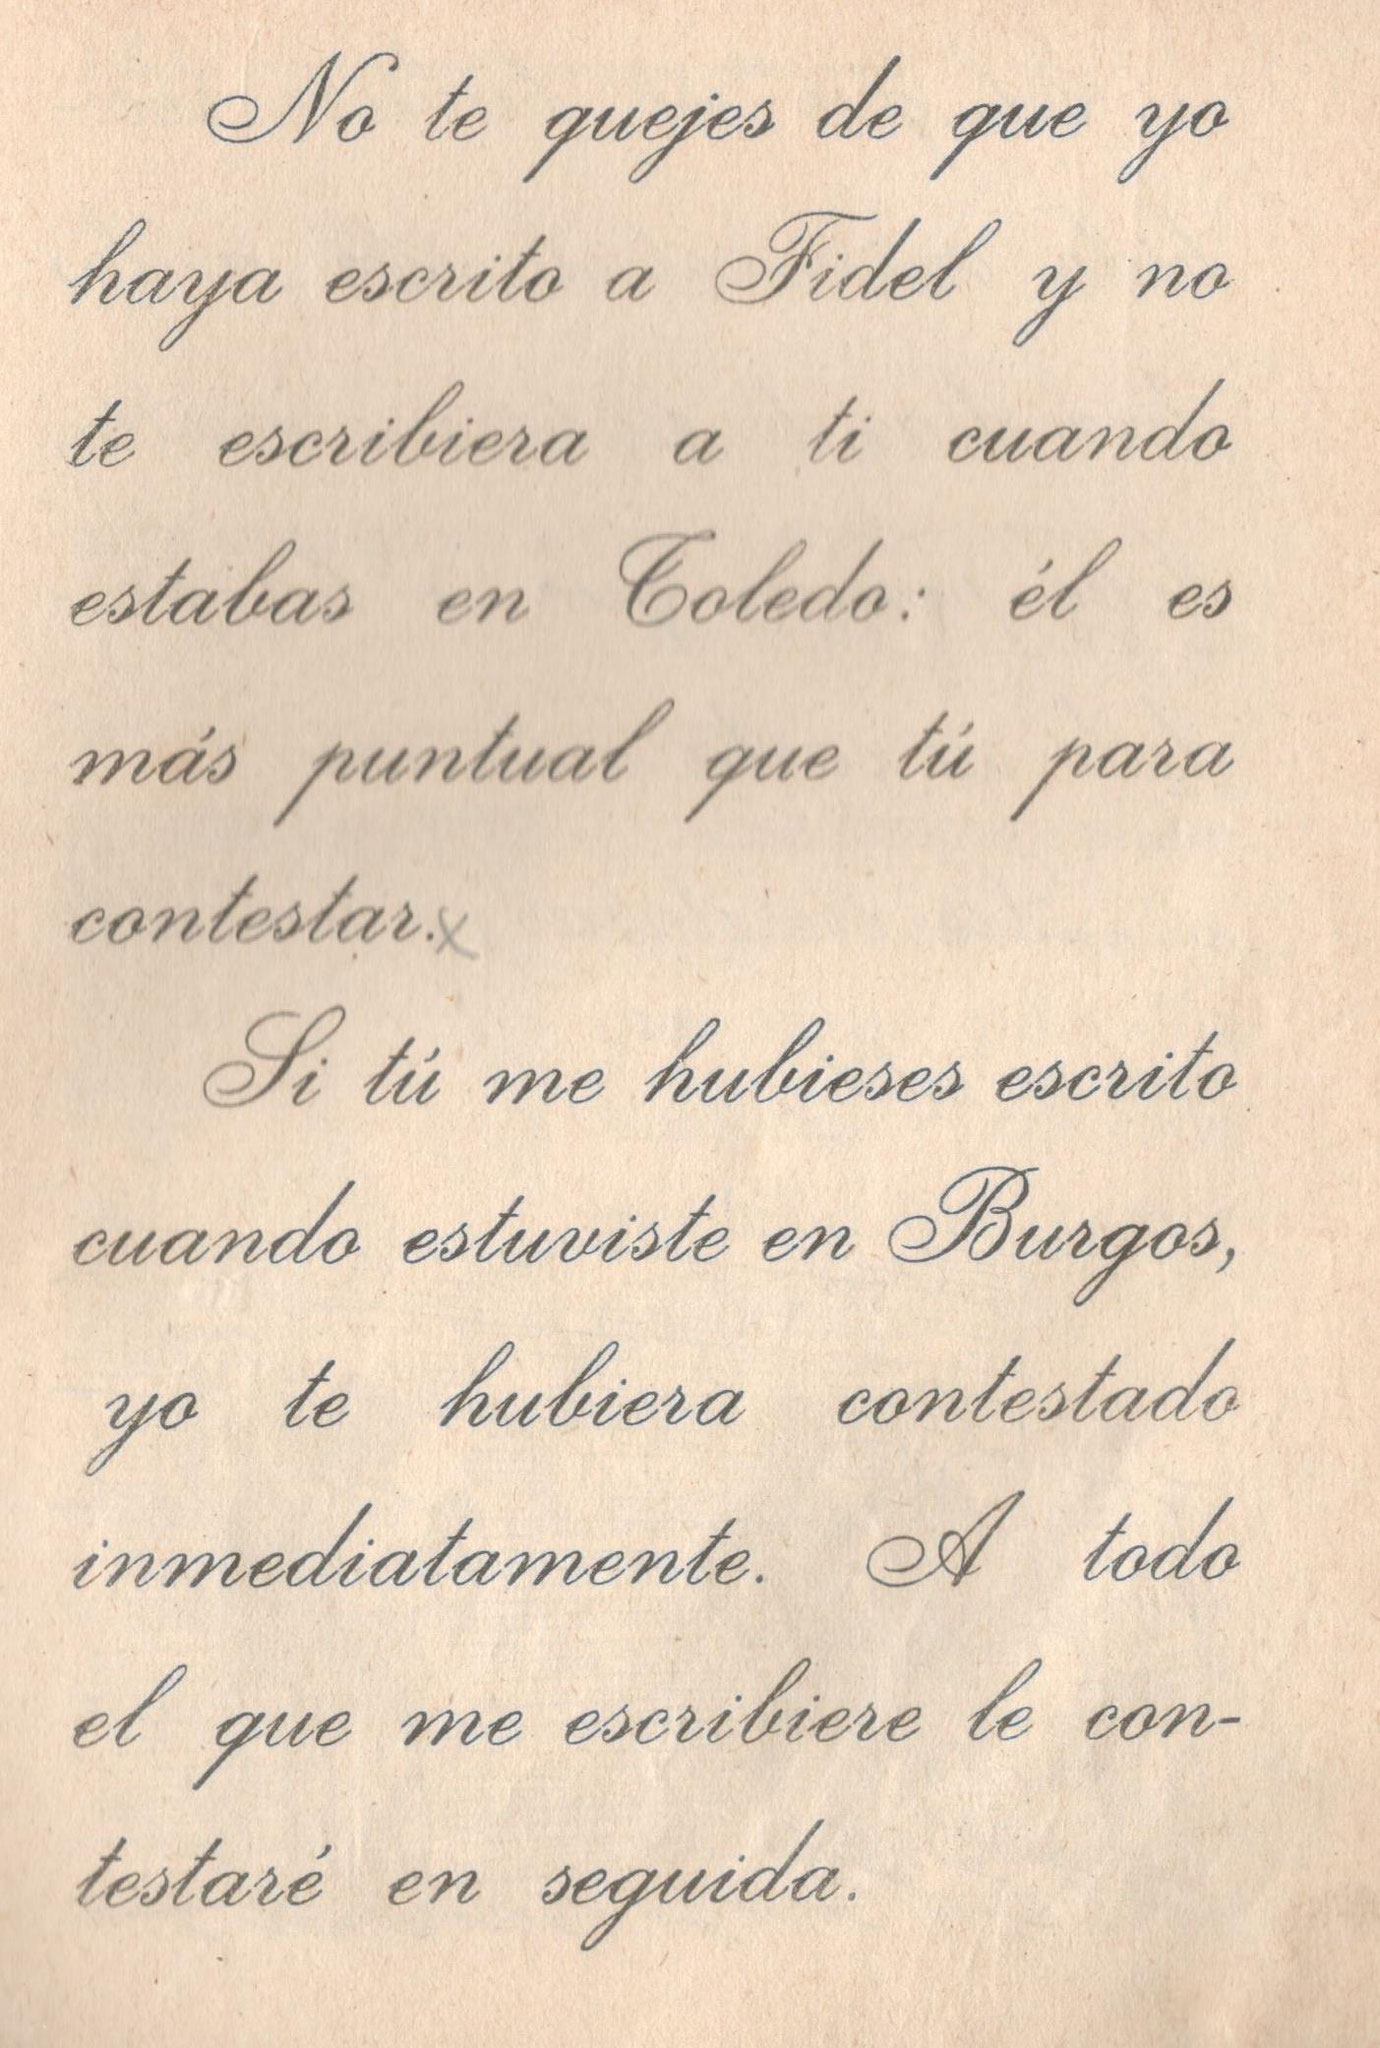 No te quejes de que yo
haya escrito a Fidel y no
te escribiera a ti cuando
estabas en Toledo: él es
más puntual que tú para
contestar.x
Si tú me hubieses escrito
cuando estuviste en Burgos,
yo te hubiera contestado
inmediatamente. A todo
el que me escribiere le con-
testaré en seguida.